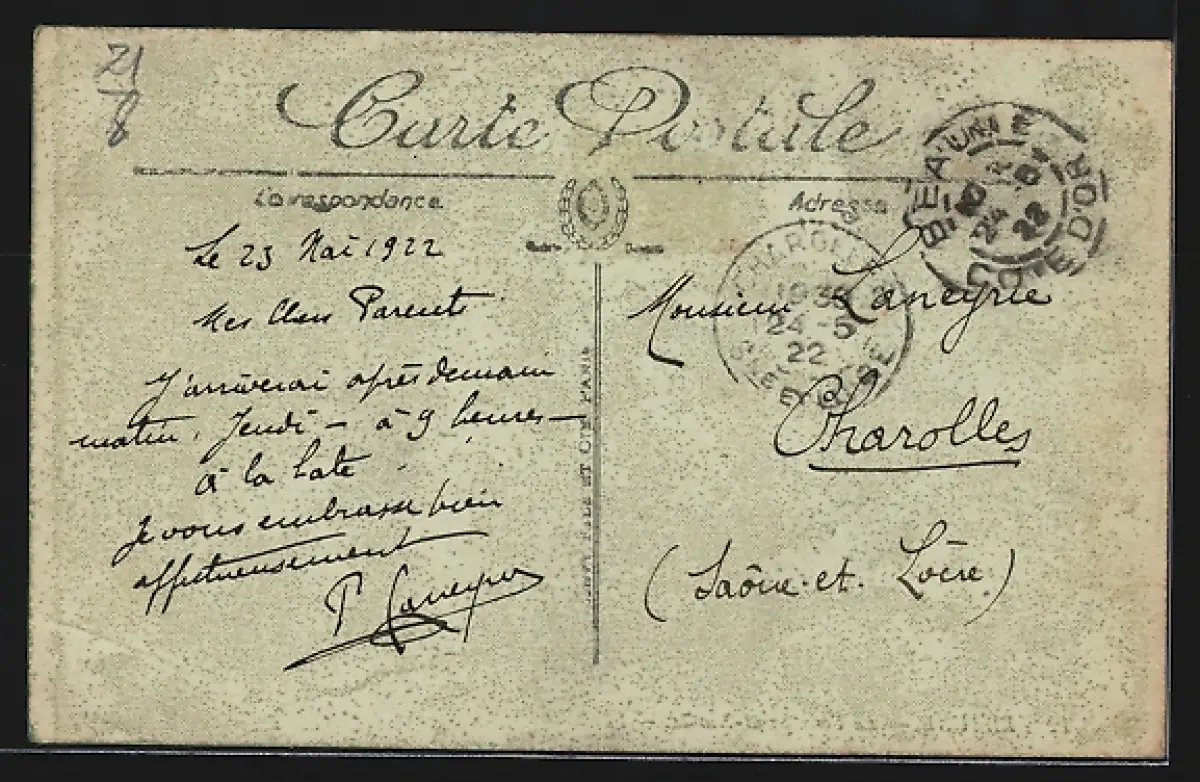 21
8
Carte Postale
Correspondance
Adresse
BEAUNE
24
22
COTE D'OR
CHAROLLES
19 35
24 - 5
22
SAÔNE ET LOIRE
Le 23 Mai 1922
Mes Chers Parents
J'arriverai après demain
matin, Jeudi - à 9 heures -
à la hate
Je vous embrasse bien
affectueusement
P Laneyrie
Monsieur Laneyrie
Charolles
(Saône-et-Loire)